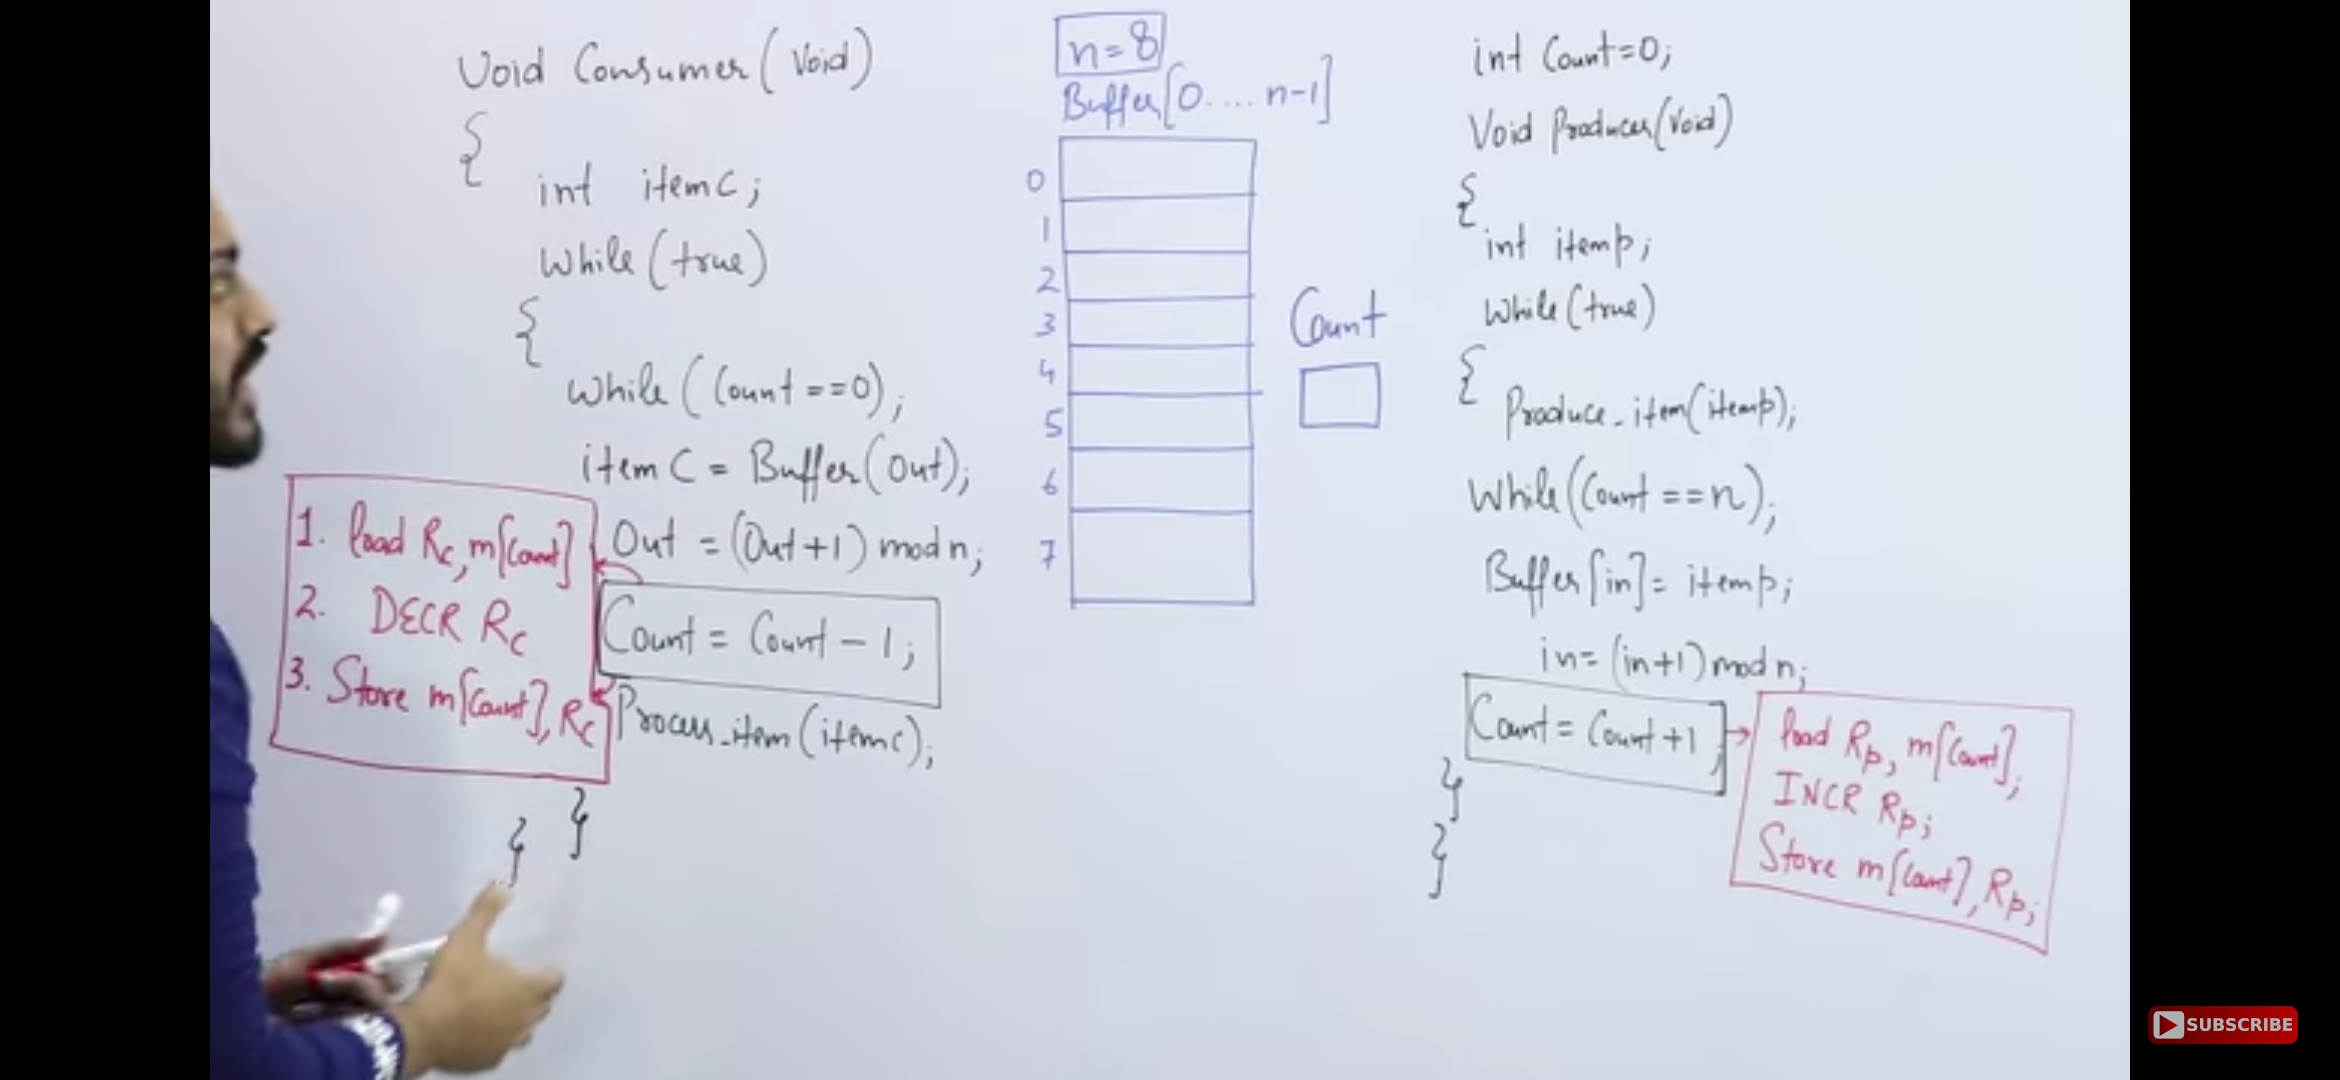 Void Consumer (Void)
{
int itemc;
While (true)
{
While (Count == 0);
itemC = Buffer(Out);
Out = (Out+1) mod n;
Count = Count - 1;
Process_item (itemc);
}
}
1. load Rc, m[Count]
2. DECR Rc
3. Store m[Count], Rc
n=8
Buffer[0.... n-1]
0
1
2
3
4
5
6
7
Count
int Count=0;
Void Producer(Void)
{
int itemp;
While (true)
{
Produce_item(itemp);
While(Count == n);
Buffer[in] = itemp;
in= (in+1) mod n;
Count = Count+1;
}
}
load Rp, m[Count];
INCR Rp;
Store m[Count], Rp;
SUBSCRIBE